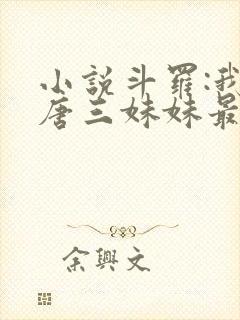 小說斗羅:我
唐三妹妹最
余興文